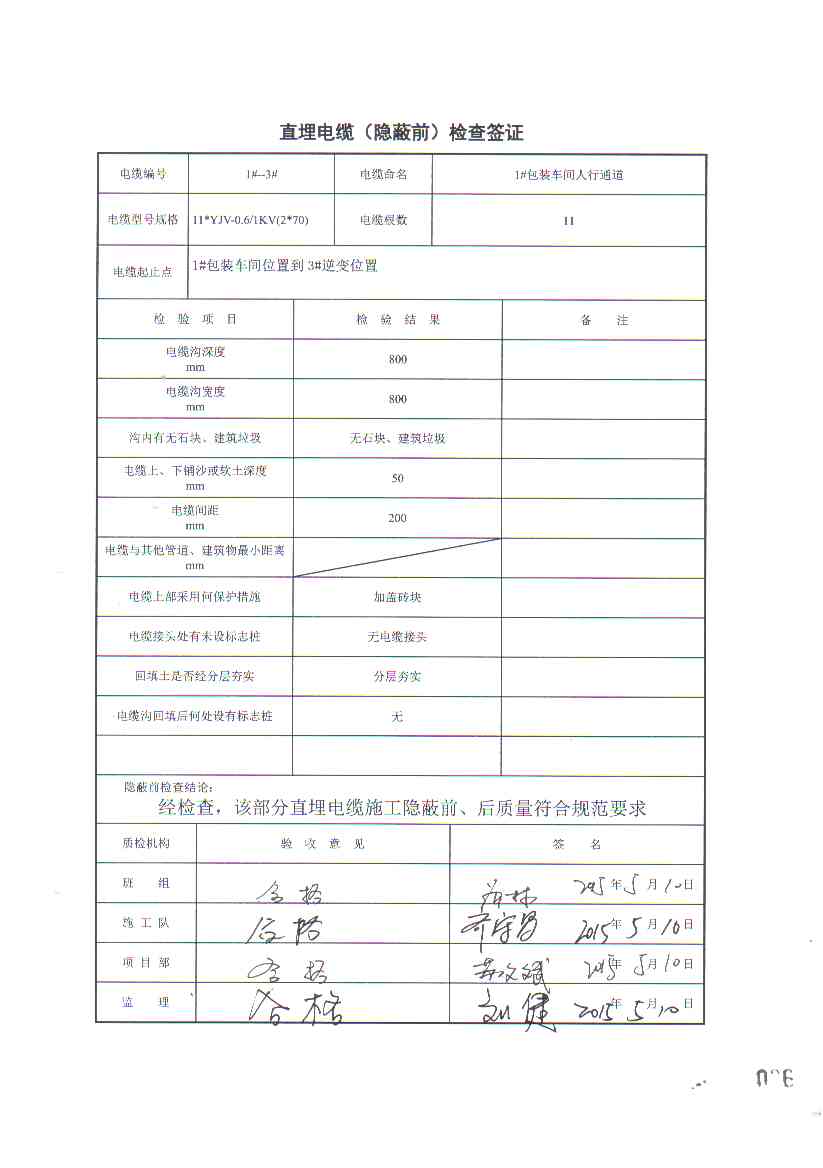 直埋电缆（隐蔽前）检查签证
电缆编号 1#--3# 电缆命名 1#包装车间人行通道
电缆型号规格 11*YJV-0.6/1KV(2*70) 电缆根数 11
电缆起止点 1#包装车间位置到 3#逆变位置
检 验 项 目 检 验 结 果 备 注
电缆沟深度
mm 800
电缆沟宽度
mm 800
沟内有无石块、建筑垃圾 无石块、建筑垃圾
电缆上、下铺沙或软土深度
mm 50
电缆间距
mm 200
电缆与其他管道、建筑物最小距离
mm
电缆上部采用何保护措施 加盖砖块
电缆接头处有未设标志桩 无电缆接头
回填土是否经分层夯实 分层夯实
电缆沟回填后何处设有标志桩 无
隐蔽前检查结论：
经检查，该部分直埋电缆施工隐蔽前、后质量符合规范要求
质检机构 验 收 意 见 签 名
班 组 合格 2015年5月10日
施 工 队 合格 2015年5月10日
项 目 部 合格 2015年5月10日
监 理 合格 刘健 2015年5月10日